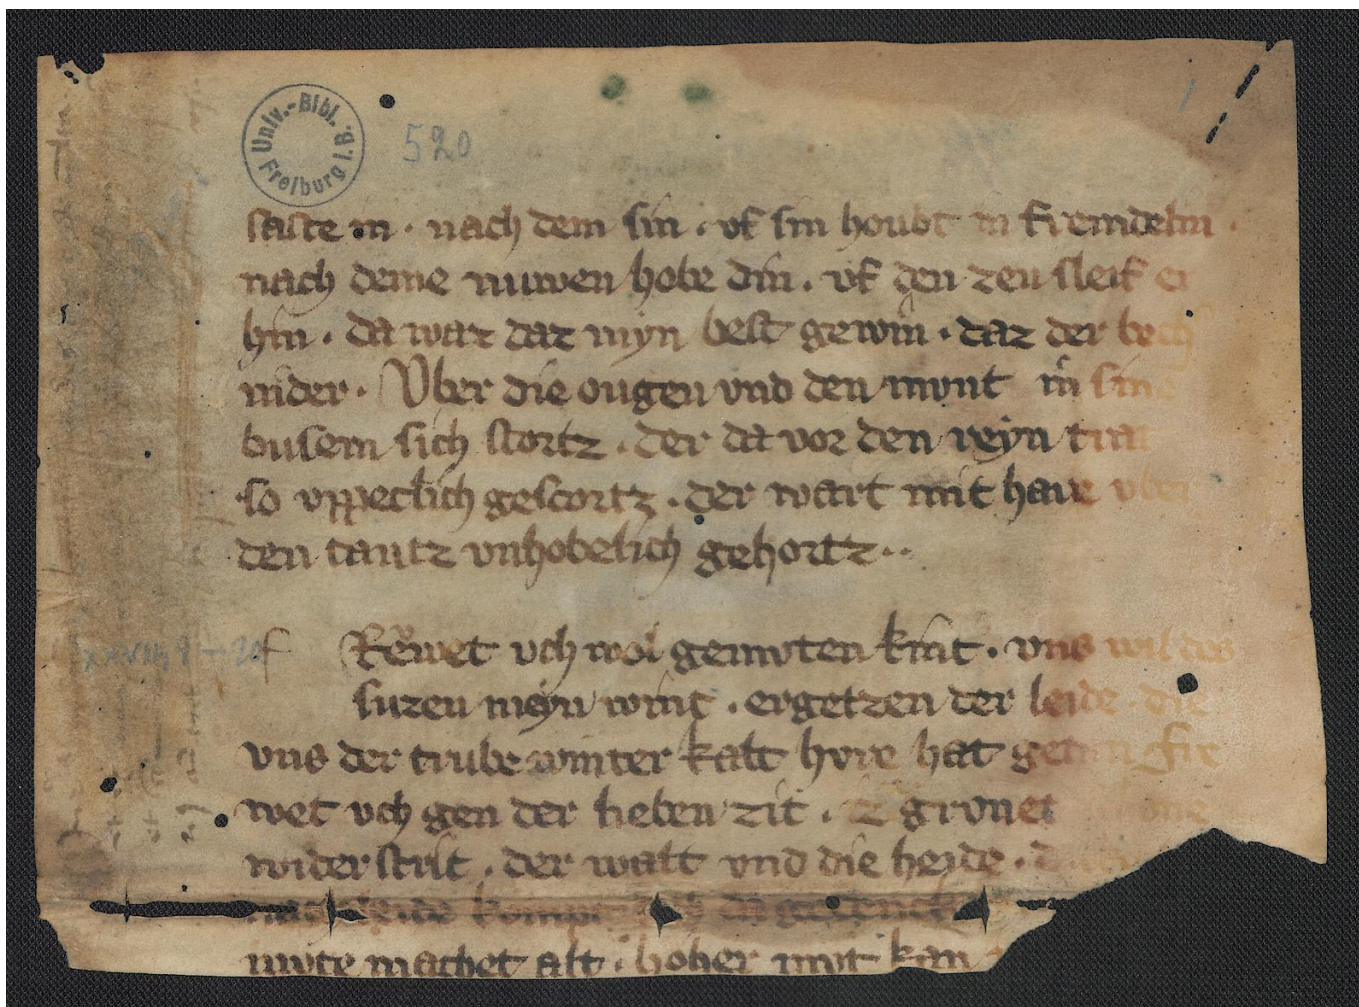 Univ.-Bibl. Freiburg i. B.
520
1
saste in · nach dem sin · vf sin houbt in fremdelin ·
nach deme nuwen hobe din . vf den zen sleif er
hin . da waz daz myn best gewin · daz der bech
nider · Vber die ougen vnd den mvnt in sine
busem sich stortz . der da vor den reyn trat
so vppeclich gescortz . der wart mit hare vber
den tantz vnhobelich gehortz ··
f Rewet vch wol gemvten kint . vns wil des
suzen meyn wint . ergetzen der leide · die
vns der trube winter kalt hvre hat getan Fre
wet vch gen der lieben zit . ez grvnet one
widerstrit . der walt vnd die heide .
leide kompt
mvte machet alt . hoher mvt kan